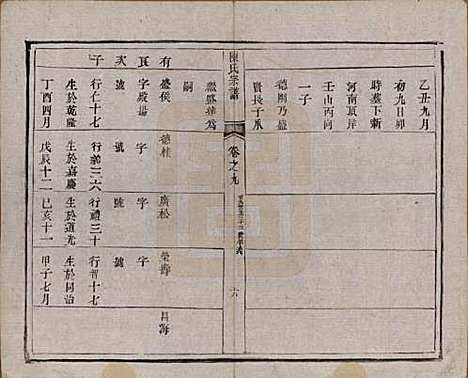 乙丑九月
初九日卯
時葬下新
河南瓦岸
壬山丙向
一子
德剛乃盛
賢長子承
繼盛華為
嗣
陳氏宗譜
卷之九
十六
有
長
次
子
盛侯
字殿揚
號
行仁十七
生於乾隆
丁酉四月
德桂
字
號
行義三六
生於嘉慶
戊辰十二
廣松
字
號
行禮三十
生於道光
己亥十一
榮壽
昌海
字
號
行智十七
生於同治
甲子七月